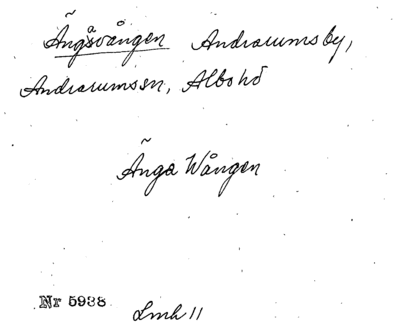 Ängåvången Andrarumsby,
Andrarumssn, Albohd
Änga Wången
Nr 5938
Lmh 11